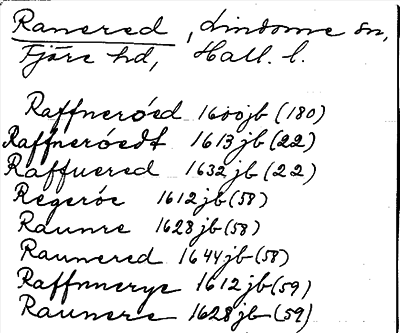 Ranered, Lindome sn,
Fjäre hd, Hall. l.
Raffneröed 1600jb (180)
Raffneröedt 1613jb (22)
Raffuered 1632jb (22)
Regeröe 1612jb (58)
Raunre 1628jb (58)
Raunered 1644jb (58)
Raffnnerye 1612jb (59)
Raunere 1628jb (59)